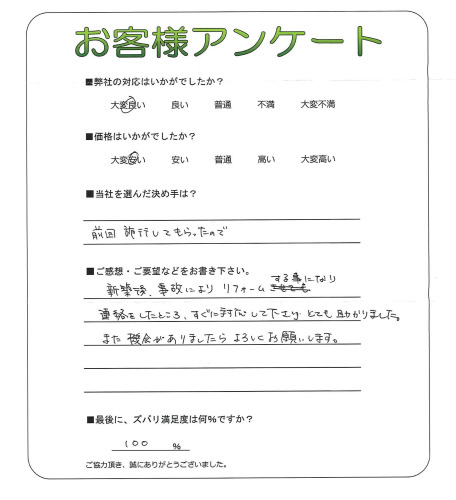 お客様アンケート
■弊社の対応はいかがでしたか?
大変良い 良い 普通 不満 大変不満
■価格はいかがでしたか?
大変安い 安い 普通 高い 大変高い
■当社を選んだ決め手は?
前回 施行してもらったので
■ご感想・ご要望などをお書き下さい。
新築後、事故により リフォーム する事になり
連絡をしたところ、すぐに対応して下さり とても助かりました。
また 機会がありましたら よろしくお願いします。
■最後に、ズバリ満足度は何%ですか?
100 %
ご協力頂き、誠にありがとうございました。